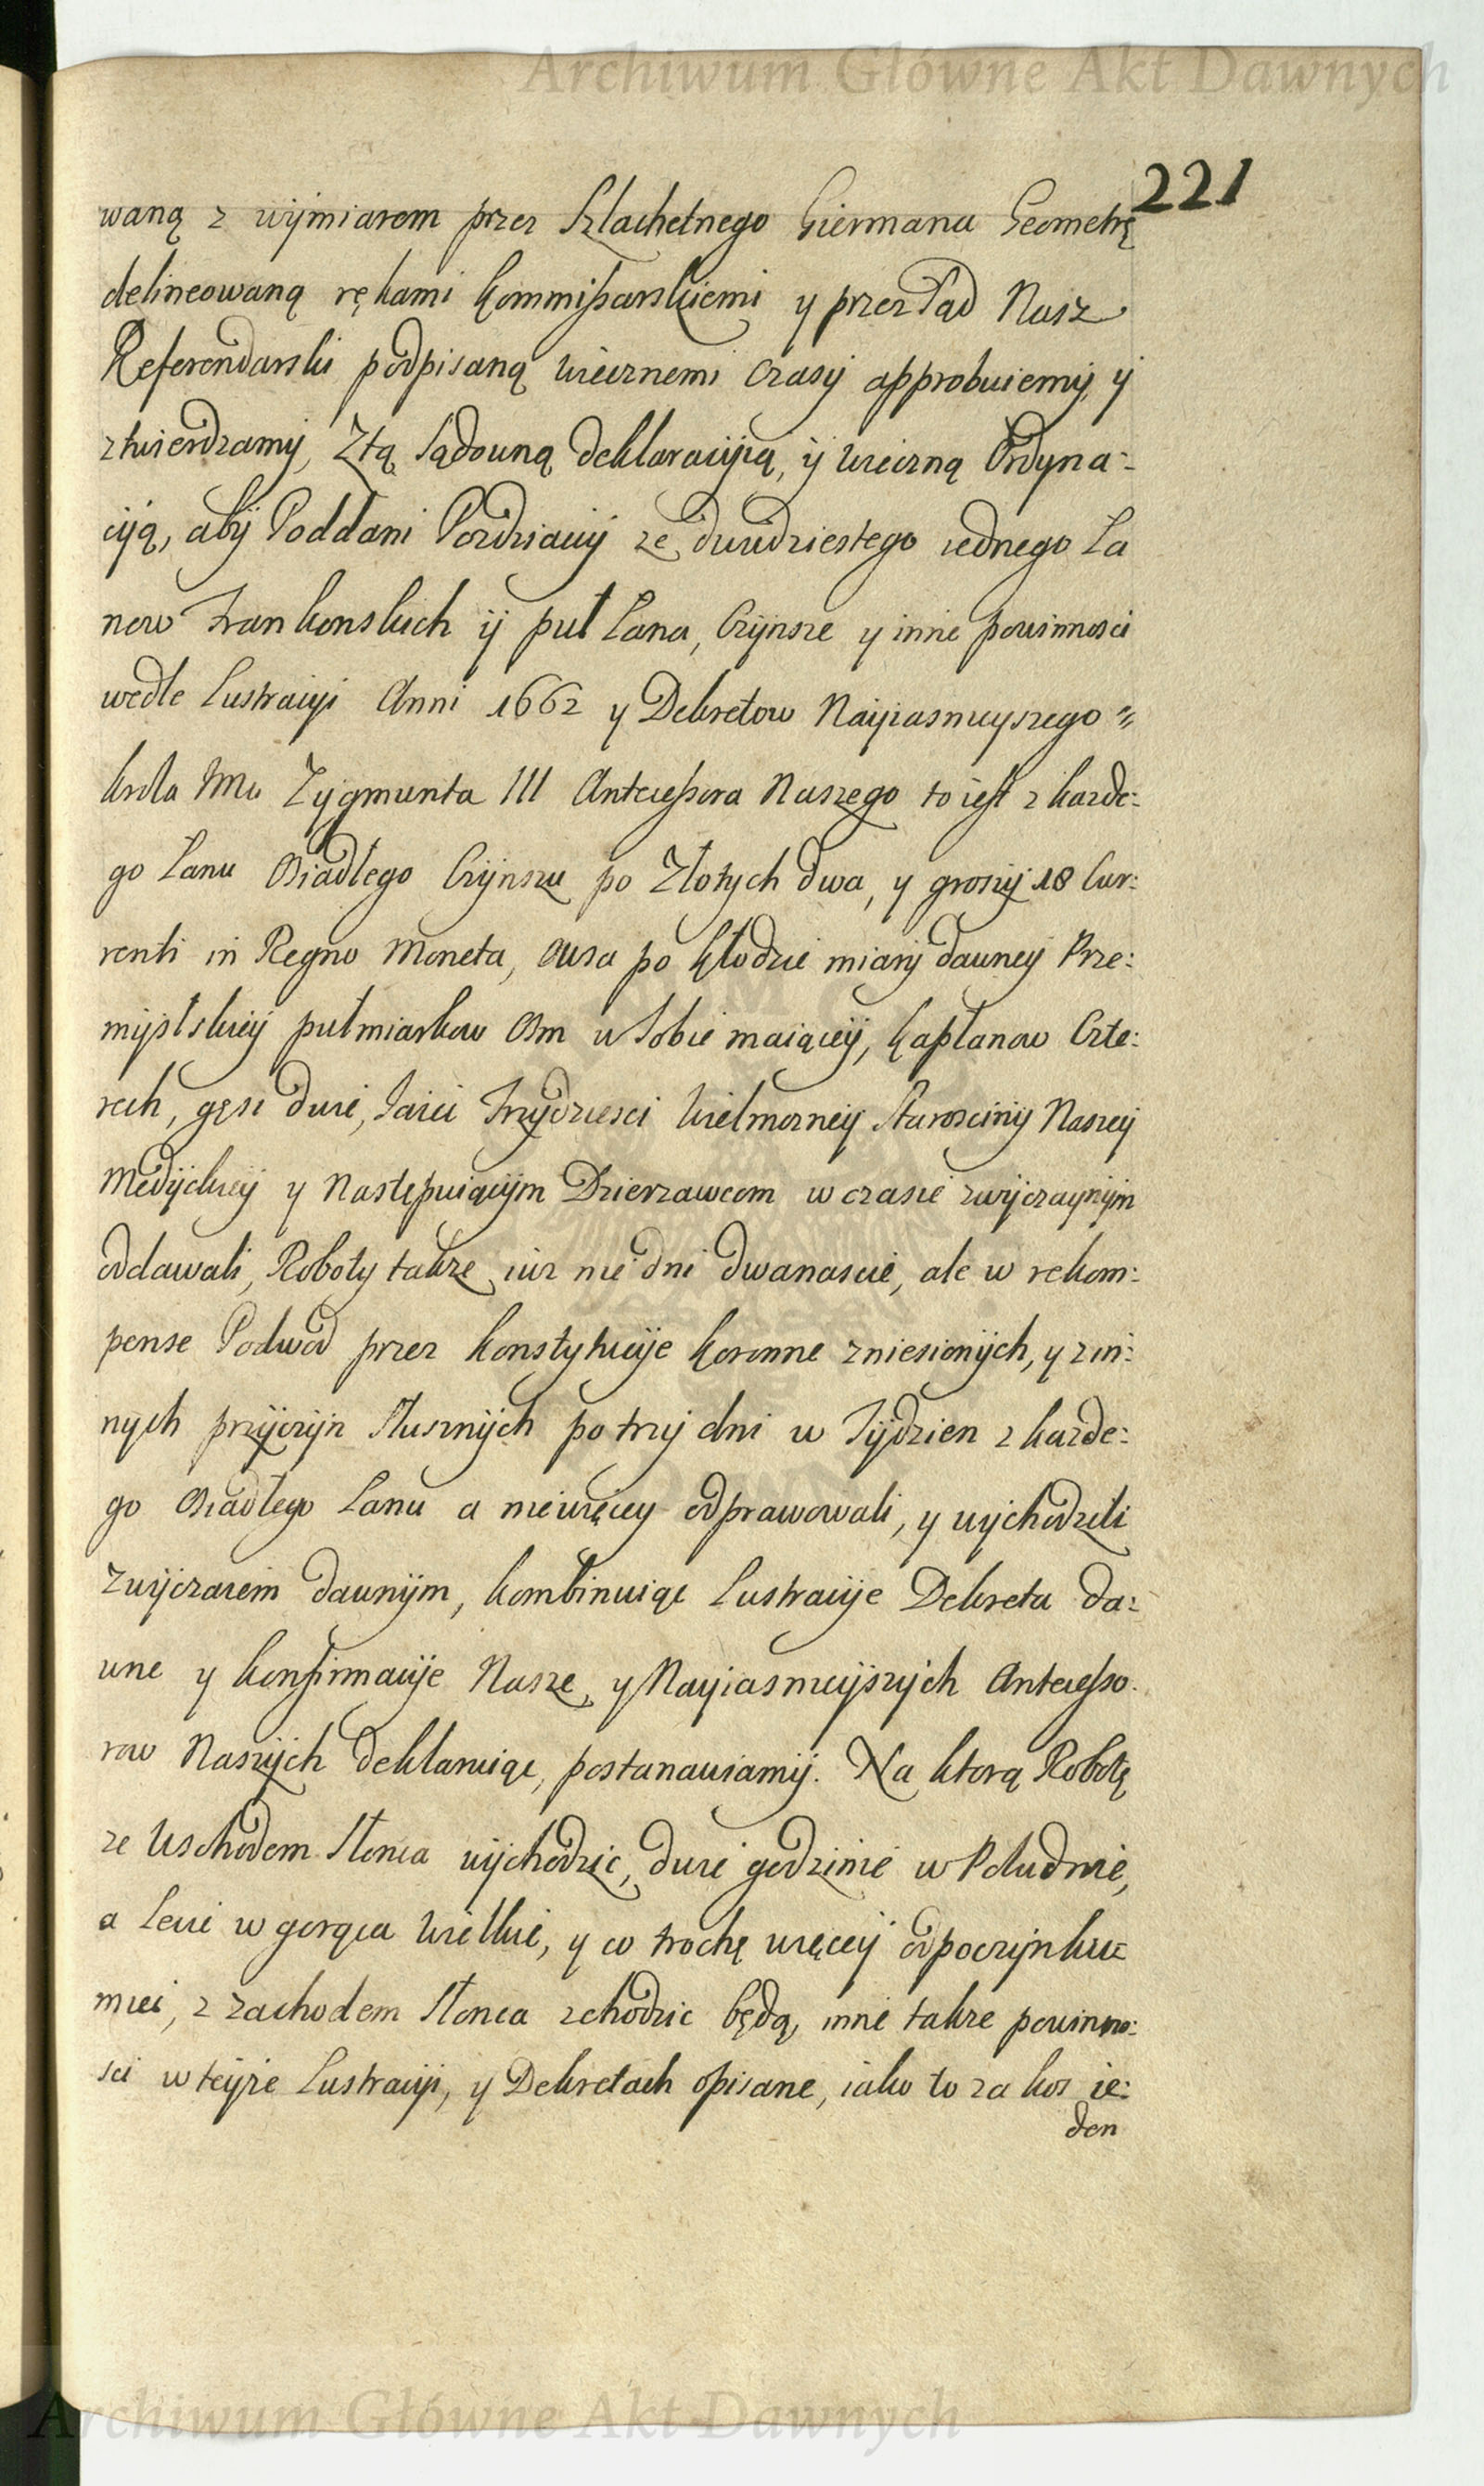 Archiwum Główne Akt Dawnych
221
waną z wÿmiarem przez Szlachetnego Giermana Geometrę
delineowaną rękami kommißarskiemi y przez Sąd Nasz
Referendarski podpisaną wiecznemi czasÿ approbuiemÿ, ÿ
ztwierdzamÿ, Ztą Sądowną deklaracÿią, ÿ wieczną Ordyna-
cÿą, abÿ Poddani Pozdziaccÿ ze dwudziestego iednego La
now Frankonskich ÿ puł Lana, Czÿnsze y inne powinnosci
wedle Lustracÿi Anni 1662 y Dekretow Naÿiasnieyszego
krola Mci Zygmunta III Antceßora Naszego to iest z kazde:
go Lanu Osiadłego Czÿnszu po Złotych dwa, y groszÿ 18 Cur:
renti in Regno Moneta, owsa po kłodzie miarÿ dawneÿ Prze:
mÿslskieÿ pułmiarkow Osm w Sobie maiąceÿ, kapłanow Czte:
rech, gęsi dwie, Jaiec Trzÿdziesci Wielmozneÿ Staroscinÿ Naszeÿ
Medÿckieÿ y Następuiącÿm Dzierzawcom w czasie zwÿczaynÿm
oddawali, Roboty takze iuz nie dni dwanascie, ale w rekom:
pense Podwod przez konstytucÿe koronne zniesionÿch, y z in:
nych przÿczÿn Słusznÿch po trzÿ dni w Tÿdzien z kazde:
go Osiadłego Lanu a niewięcey odprawowali, y wychodzili
Zwÿczaiem dawnÿm, kombinuiąc Lustracÿe Dekreta da:
wne y konfirmacÿe Nasze, y Nayiasnieÿszÿch Anteceßo.
row Naszÿch deklaruiąc, postanawiamÿ. Na ktorą Robotę
ze Wschodem Słonca wÿchodzic, dwie godzinie w Poludnie,
a Lecie w gorąca Wielkie, y co trochę więceÿ odpoczÿnku
miec, z zachodem Słonca zchodzic będą, inne takze powinno:
sci w teÿże Lustracÿi, y Dekretach opisane, iako to za kos ie:
den
Archiwum Główne Akt Dawnych